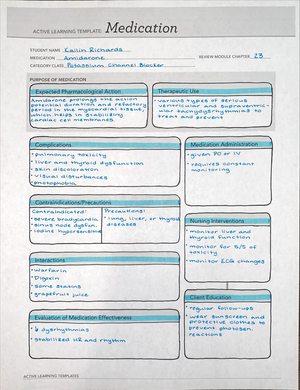 ACTIVE LEARNING TEMPLATE: Medication
STUDENT NAME Kailin Richards
MEDICATION Amiodarone
REVIEW MODULE CHAPTER 23
CATEGORY CLASS Potassium Channel Blocker
PURPOSE OF MEDICATION
Expected Pharmacological Action
Amiodarone prolongs the action
potential duration and refactory
period in the myocardial tissue,
which helps in stabilizing
cardiac cell membranes.
Therapeutic Use
• various types of serious
ventricular and supraventric-
ular tachydysrhythmias to
treat and prevent
Complications
• pulmonary toxicity
• liver and thyroid dysfunction
• skin discoloration
• visual disturbances
• photophobia
Medication Administration
• given PO or IV
• requires constant
monitoring
Contraindications/Precautions
Contraindicated:
• severe bradycardia,
• sinus node dysfun.
iodine hypersensitive
Precautions:
• lung, liver, or thyroid
diseases
Nursing Interventions
• monitor liver and
thyroid function
• monitor for S/S of
toxicity
• monitor ECG changes
Interactions
• Warfarin
• Digoxin
• some statins
• grapefruit juice
Client Education
• regular follow-ups
• wear sunscreen and
protective clothes to
prevent photosen.
reactions
Evaluation of Medication Effectiveness
• ↓ dysrhythmias
• stabilized HR and rhythm
ACTIVE LEARNING TEMPLATES